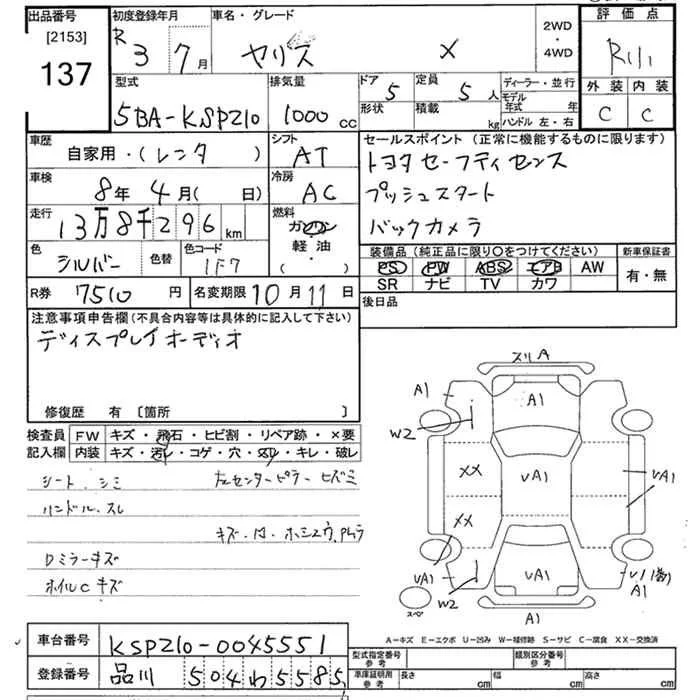 出品番号 初度登録年月 車名・グレード 2WD ・ 4WD 評価点
[2153]
137
R 3 7月 ヤリス X
外装 内装
C C
型式 排気量 ドア 定員 ディーラー・並行
5BA-KSP210 1000cc 5 5人
形状 積載 kg モデル年式 年
ハンドル 左・右
車歴 シフト セールスポイント(正常に機能するものに限ります)
自家用・(レンタ) AT トヨタセーフティセンス
車検 冷房 プッシュスタート
8年4月(日) AC バックカメラ
走行 燃料
13万8千296km ガソリン
軽油
・( )
装備品(純正品に限り○をつけてください) 新車保証書
PS PW ABS エアB AW 有・無
SR ナビ TV カワ
色 シルバー 色替 色コード 1F7
R券 7510円 名変期限 10月11日 後日品
注意事項申告欄(不具合内容等は具体的に記入して下さい)
ディスプレイオーディオ
修復歴 有 [箇所 ]
検査員 FW キズ・飛石・ヒビ割・リペア跡・×要
記入欄 内装 キズ・汚レ・コゲ・穴・スレ・キレ・破レ
シート、シミ 左センターピラーヒズミ
ハンドル、スレ
Dミラーキズ
ホイルCキズ
スリA
A1 A1
W2
XX VA1 VA1
XX
VA1 VA1
W2 A1
スペア A1
A-キズ E-エクボ U-凹み W-補修跡 S-サビ C-腐食 XX-交換済
車台番号 KSP210-0045551
登録番号 品川 504わ5585
型式指定番号 参考 類別区分番号 参考
車庫証明用 参考 長さ cm 幅 cm 高さ cm